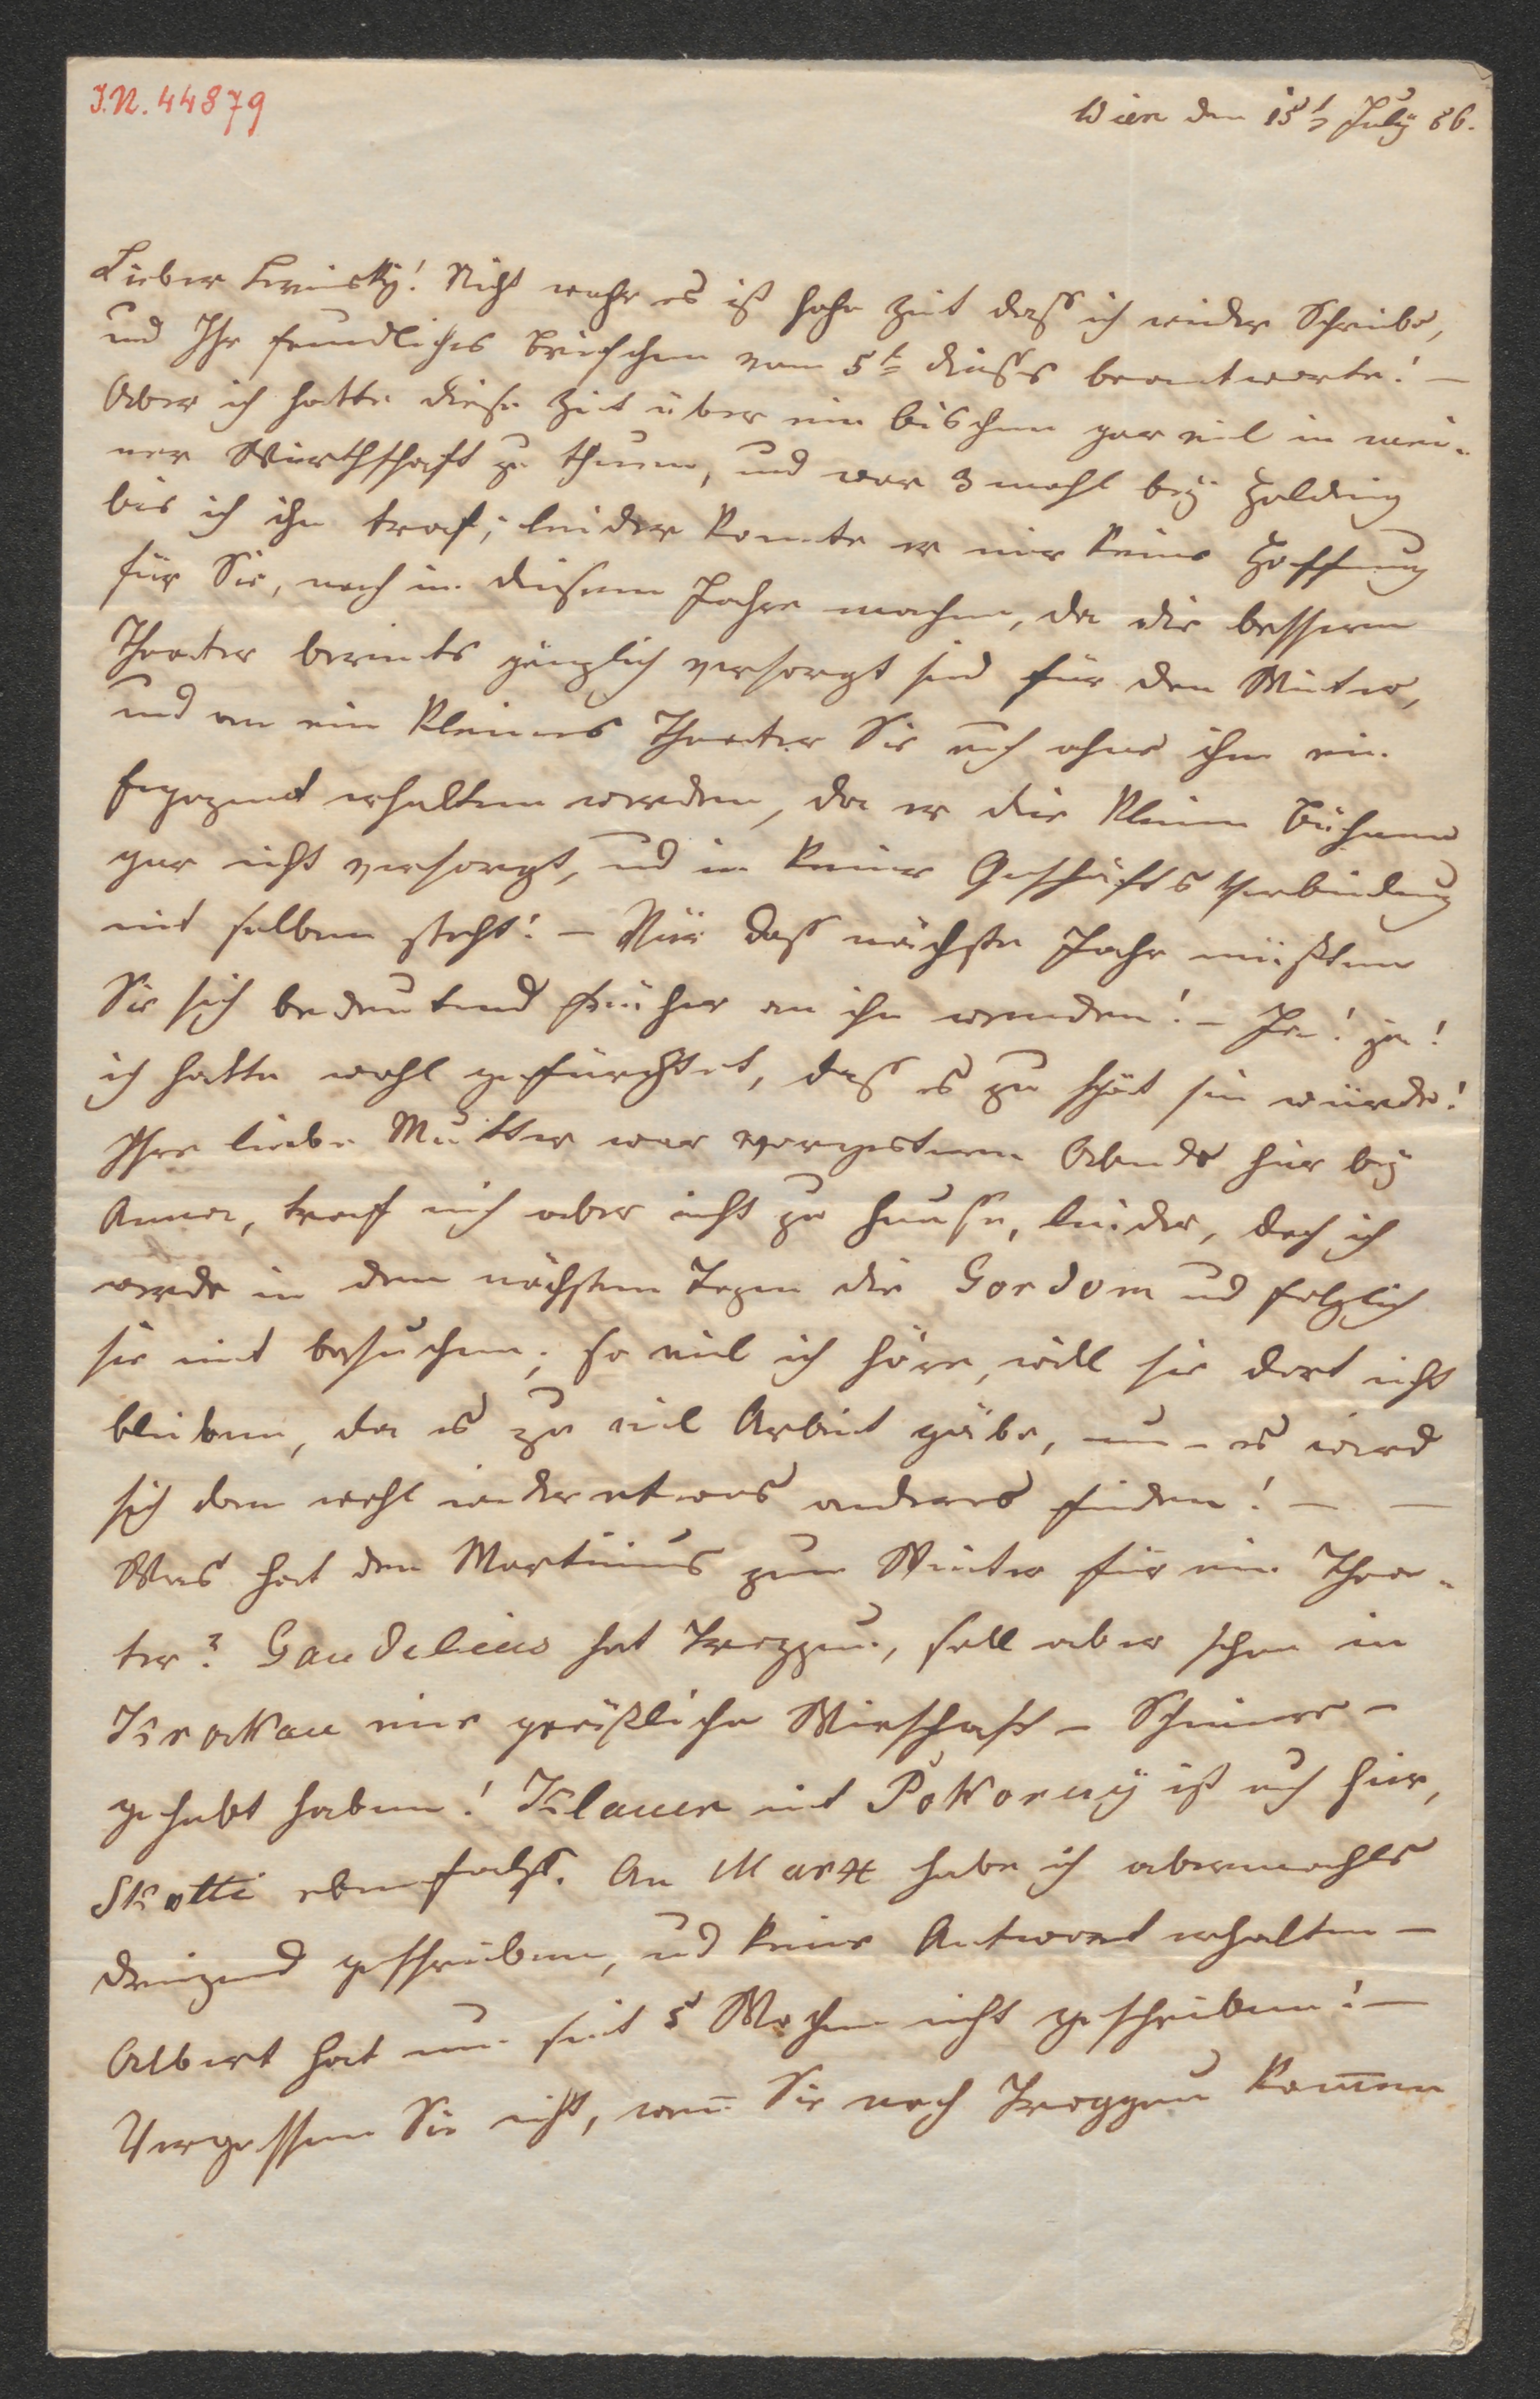 J.N. 44879
Wien den 15t July 86.
Lieber Lewinsky! Nicht wahr es ist hohe Zeit daß ich wieder Schreibe,
und Ihr freundliches Briefchen vom 5t dieses beantworte! –
Aber ich hatte diese Zeit über ein bischen gar viel in mei-
ner Wirthschaft zu thuen, und war 3 mahl bey Holding
bis ich ihn traf; leider konnte er mir keine Hoffnung
für Sie, noch in diesem Jahre machen, da die bessern
Theater bereits gänzlich versorgt sind für den Winter,
und an ein kleines Theater Sie auch ohne ihm ein
Engagement erhalten werden, da er die kleinen Bühnen
gar nicht versorgt, und in keiner Geschäfts Verbindung
mit selben steht! – Für daß nächste Jahr müßten
Sie sich bedeutend früher an ihn wenden! – Ja! ja!
ich hatte wohl gefürchtet, daß es zu spät sein würde!
Ihre liebe Mutter war vorgestern Abends hier bey
Anna, traf mich aber nicht zu Hause, leider, doch ich
werde in den nächsten Tagen die Gordom und folglich
sie mit besuchen; so viel ich höre, will sie dort nicht
bleiben, da es zu viel Arbeit gäbe, nun – es wird
sich dann wohl wieder etwas anderes finden! – –
Was hat den Martinius zum Winter für ein Thea-
ter? Gaudelius hat Troppau, soll aber schon in
Krakau eine gräßliche Wirschaft – Schmiere –
gehabt haben! Klauer mit Pokorny ist auch hier,
Skotti ebenfalls. An Marx habe ich abermahls
dringend geschrieben, und keine Antwort erhalten –
Albert hat nun seit 5 Wochen nicht geschrieben! –
Vergessen Sie nicht, wenn Sie nach Troppau kommen